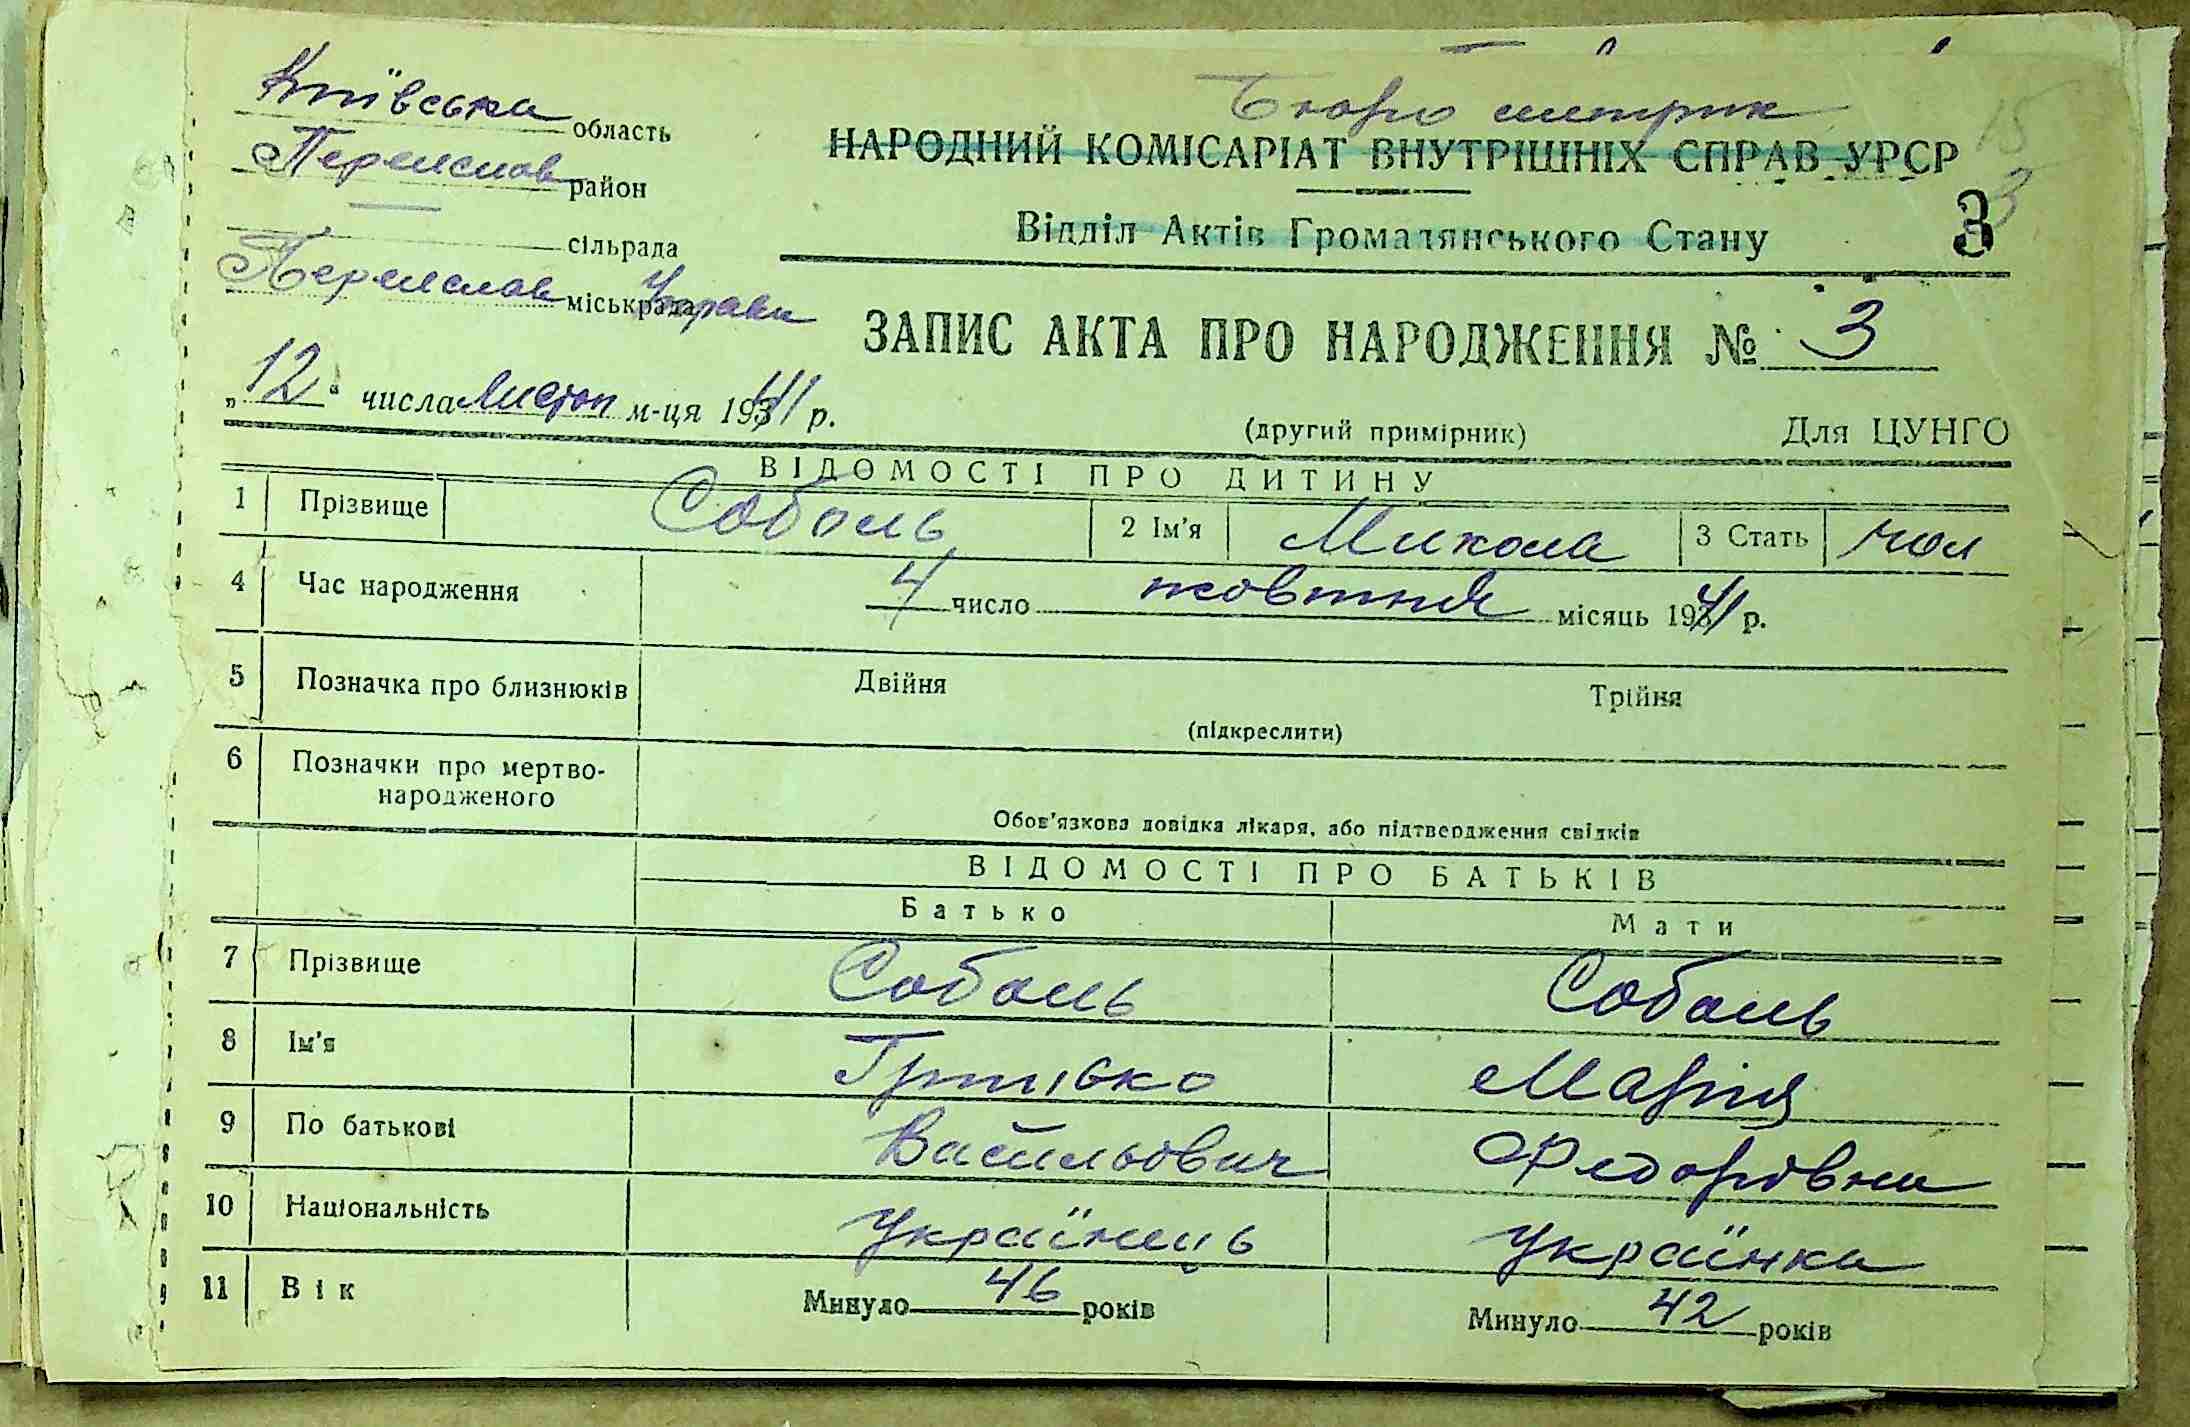 Київська область
Бюро метрик
НАРОДНИЙ КОМІСАРІАТ ВНУТРІШНІХ СПРАВ УРСР
15
3
Переяслав район
сільрада
Відділ Актів Громадянського Стану
3
Переяслав міськрада Управа
ЗАПИС АКТА ПРО НАРОДЖЕННЯ № 3
„12“ числа Листоп м-ця 1941 р.
(другий примірник) Для ЦУНГО
ВІДОМОСТІ ПРО ДИТИНУ
1 Прізвище Соболь 2 Ім'я Микола 3 Стать чол
4 Час народження 4 число жовтня місяць 1941 р.
5 Позначка про близнюків Двійня Трійня
(підкреслити)
6 Позначки про мертво-
народженого
Обов'язкова довідка лікаря, або підтвердження свідків
ВІДОМОСТІ ПРО БАТЬКІВ
Батько Мати
7 Прізвище Соболь Соболь
8 Ім'я Марія
9 По батькові Васильович Федорівна
10 Національність Українець Українка
11 Вік Минуло 46 років Минуло 42 років